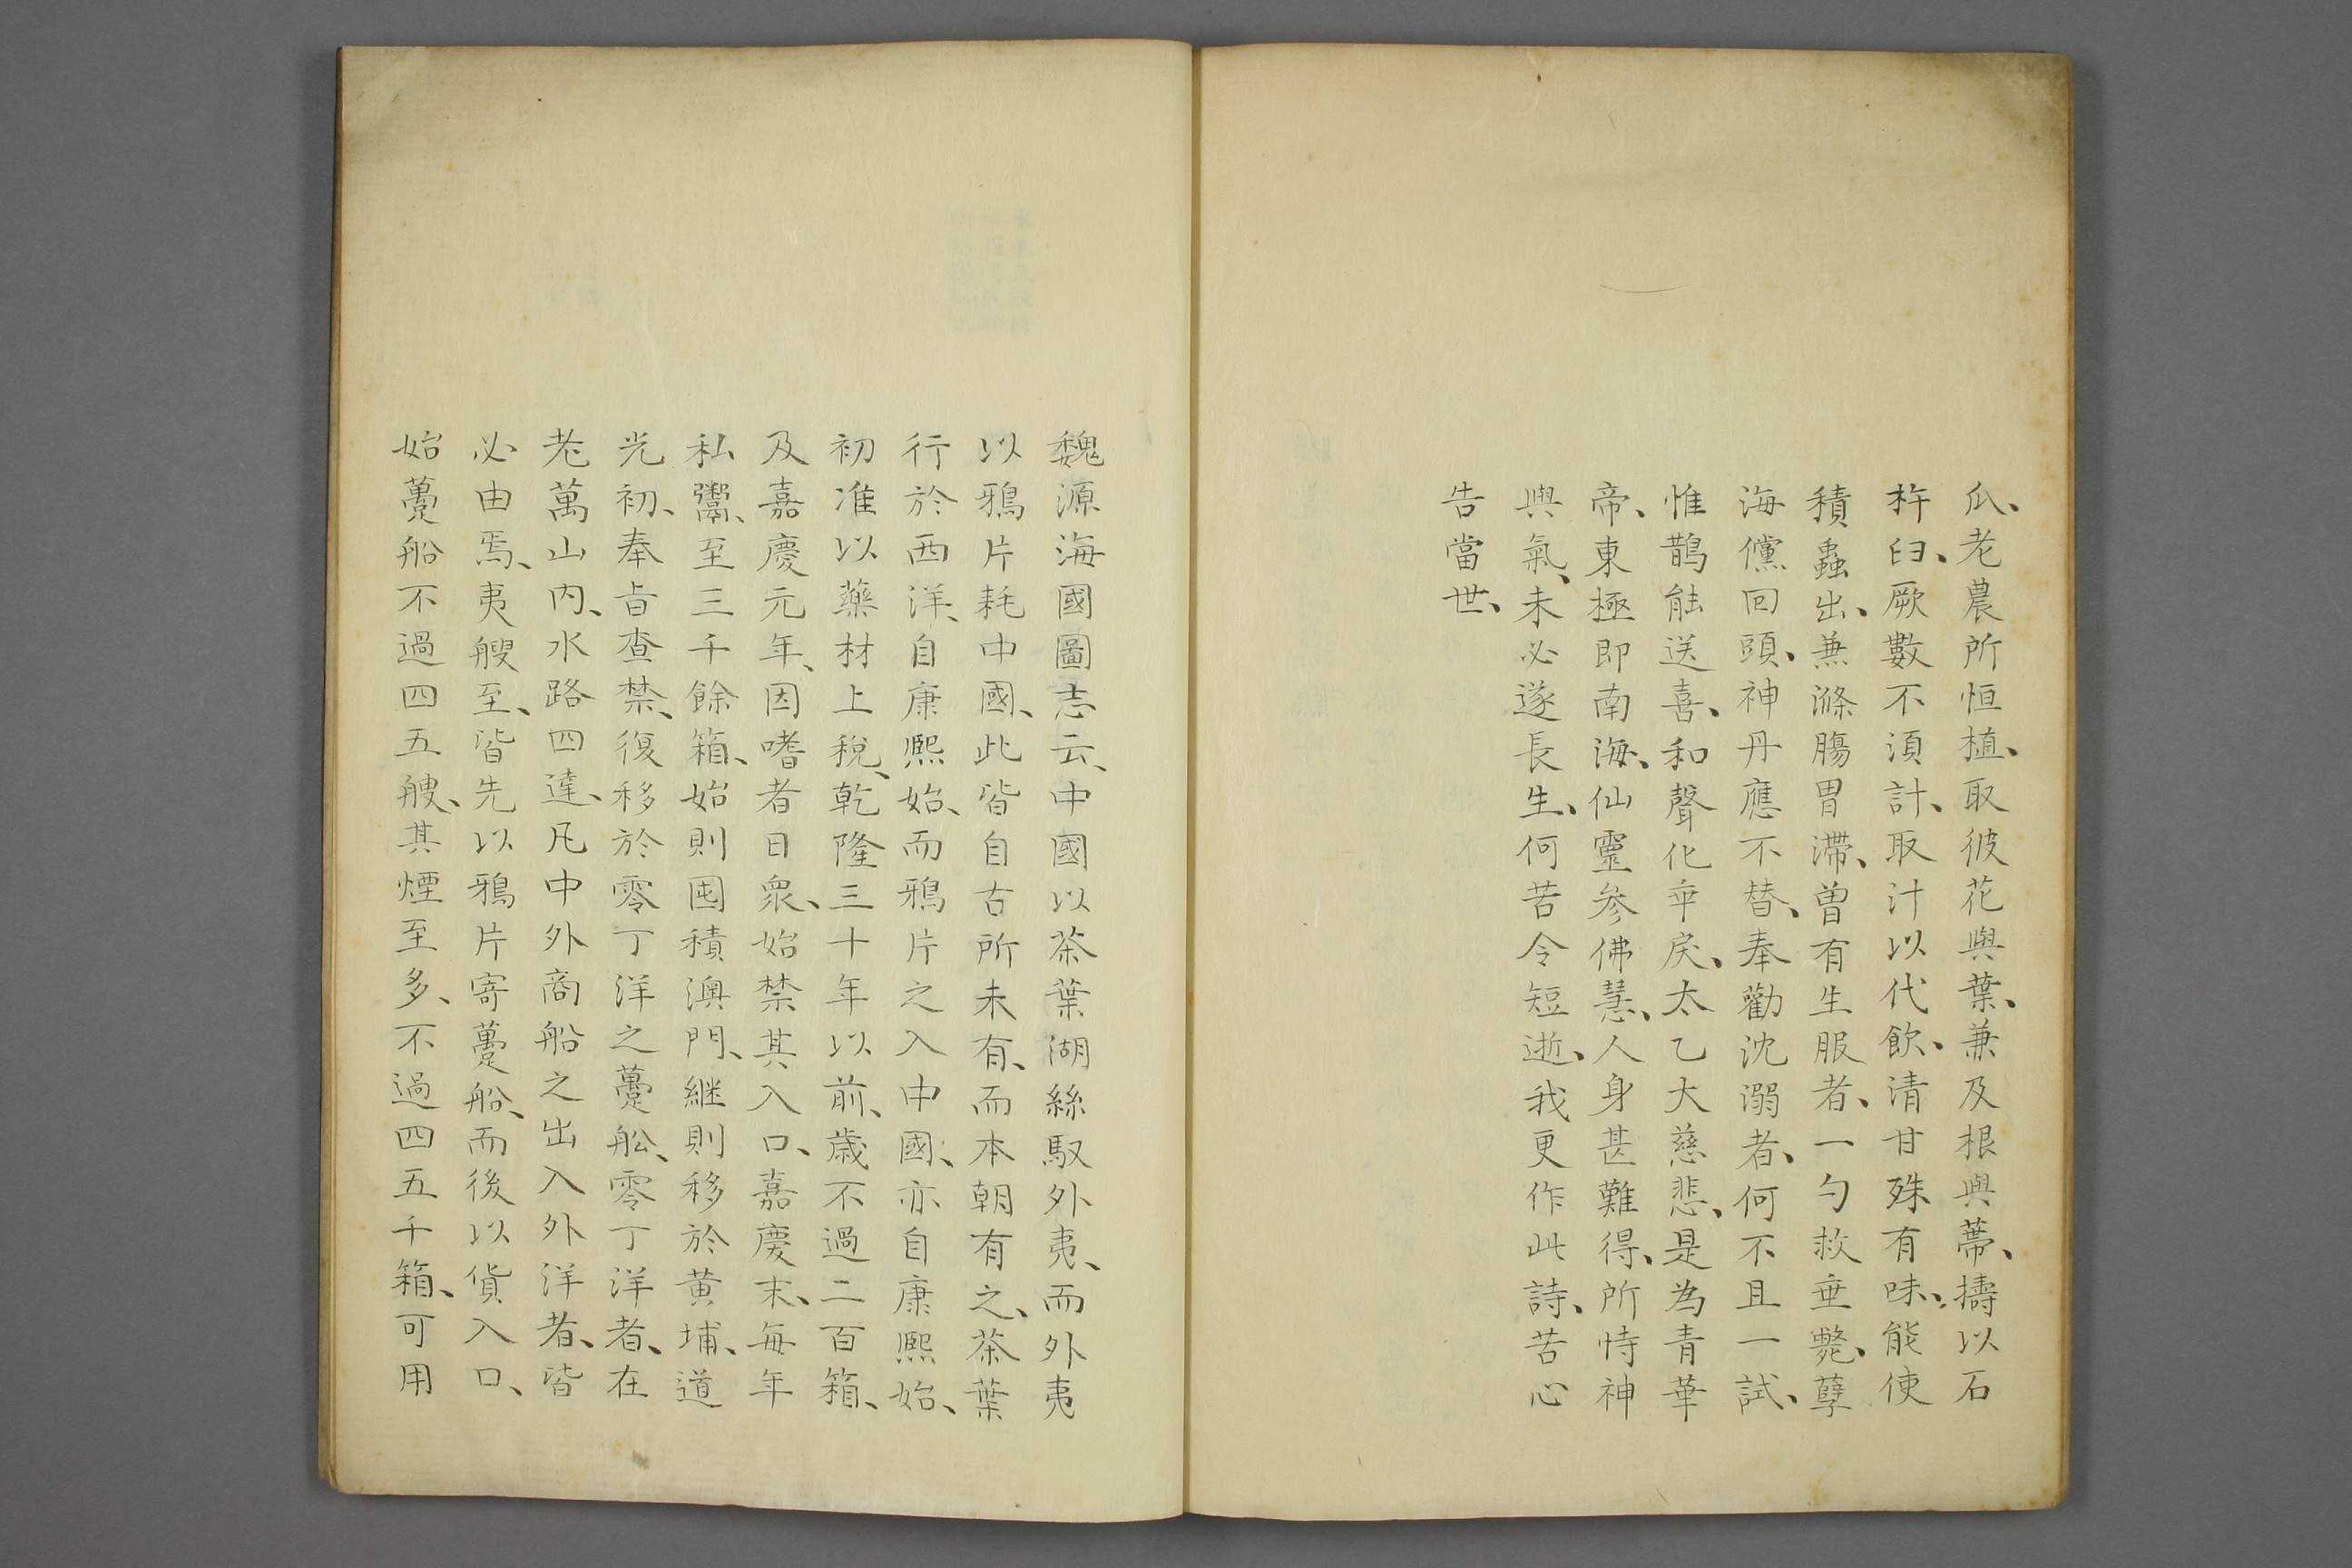 瓜、老農所恒植、取彼花與葉、兼及根與蔕、擣以石
杵臼、厥數不須計、取汁以代飲、清甘殊有味、能使
積蟲出、兼滌腸胃滯、曽有生服者、一勺救垂斃、孽
海儻回頭、神丹應不替、奉勸沈溺者、何不且一試、
惟鵲能送喜、和聲化乖戾、太乙大慈悲、是為青華
帝、東極即南海、仙靈参佛慧、人身甚難得、所恃神
與氣、未必遂長生、何苦令短逝、我更作此詩、苦心
告當世、
魏源海國圖志云、中國以茶葉湖絲馭外夷、而外夷
以鴉片耗中國、此皆自古所未有、而本朝有之、茶葉
行於西洋、自康熙始、而鴉片之入中國、亦自康熙始、
初准以藥材上稅、乾隆三十年以前、歳不過二百箱、
及嘉慶元年、因嗜者日眾、始禁其入口、嘉慶末、每年
私鬻、至三千餘箱、始則囤積澳門、継則移於黄埔、道
光初、奉旨查禁、復移於零丁洋之躉舩、零丁洋者、在
老萬山内、水路四達、凡中外商船之出入外洋者、皆
必由焉、夷艘至、皆先以鴉片寄躉船、而後以貨入口、
始躉船不過四五艘、其煙至多、不過四五千箱、可用